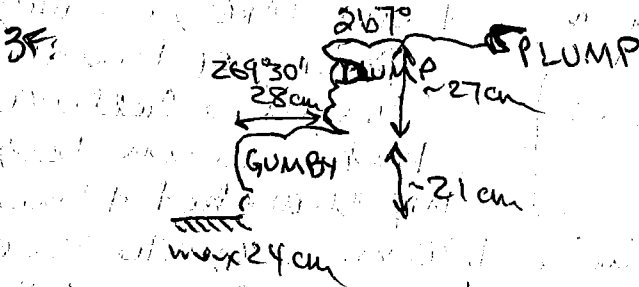 3F:
267°
PLUMP
269°30'
DUMP
28cm
~27cm
GUMBY
~21cm
max 24 cm